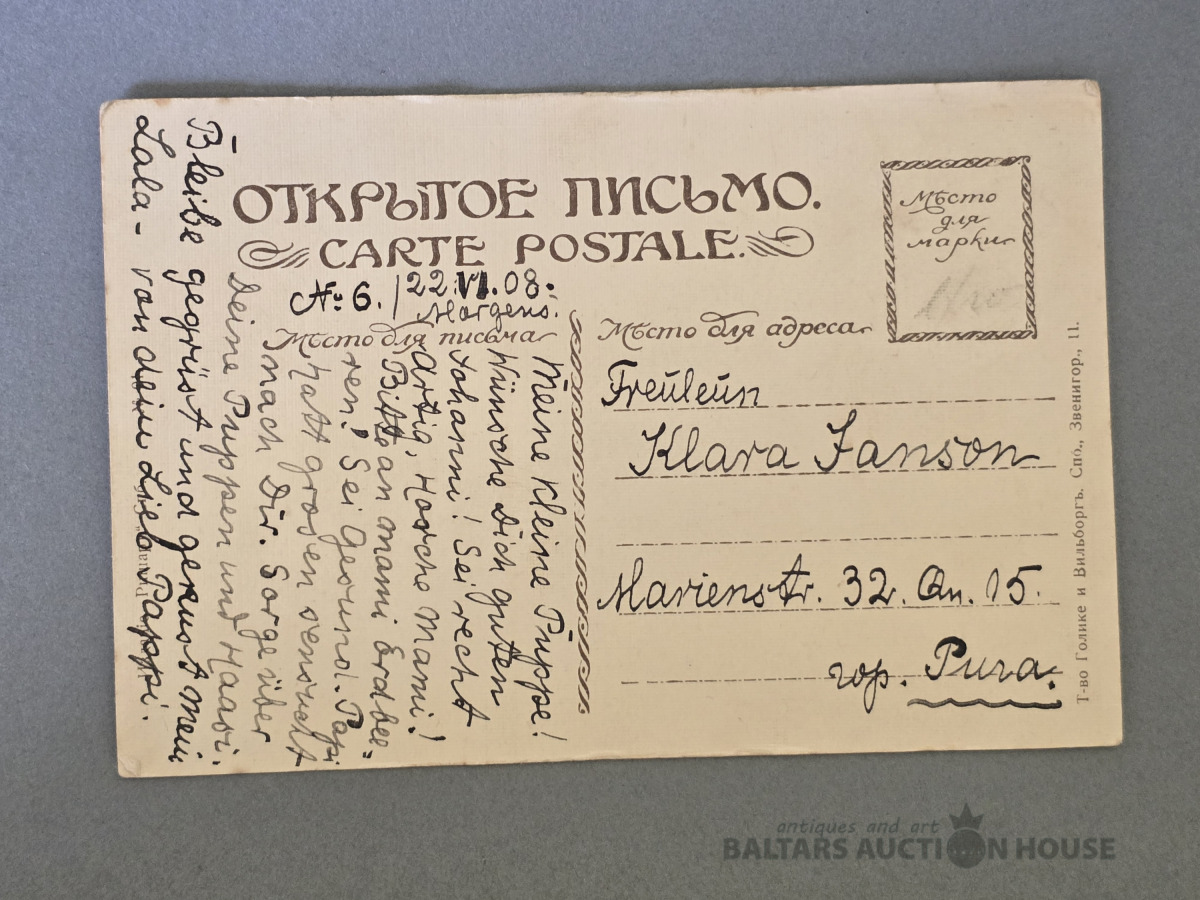 ОТКРЫТОЕ ПИСЬМО.
CARTE POSTALE.
Мѣсто
для
марки
№ 6. / 22.VI.08.
Morgens.
Мѣсто для письма
Мѣсто для адреса
Meine kleine Puppe!
Wünsche dich guten
Johanni! Sei recht
Artig, Horche Mami!
Bitte an mami Erdbee=
ren! Sei Gesund. Papi
hatt grosen sensucht
nach Dir. Sorge über
Deine Puppen und Haasi.
Bleibe gegrüst und gekust mein
Lala - von dein Lieb Pappi.
Freuleun
Klara Janson
Marienstr. 32. Qu. 15.
гор. Рига.
Т-во Голике и Вильборгъ. Спб., Звенигор., 11.
antiques and art
BALTARS AUCTION HOUSE